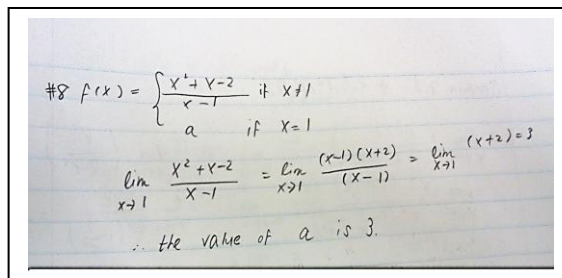 #8 f(x) = { (x²+x-2)/(x-1) if x≠1
a if x=1
lim x→1 (x²+x-2)/(x-1) = lim x→1 ((x-1)(x+2))/((x-1)) = lim x→1 (x+2)=3
∴ the value of a is 3.